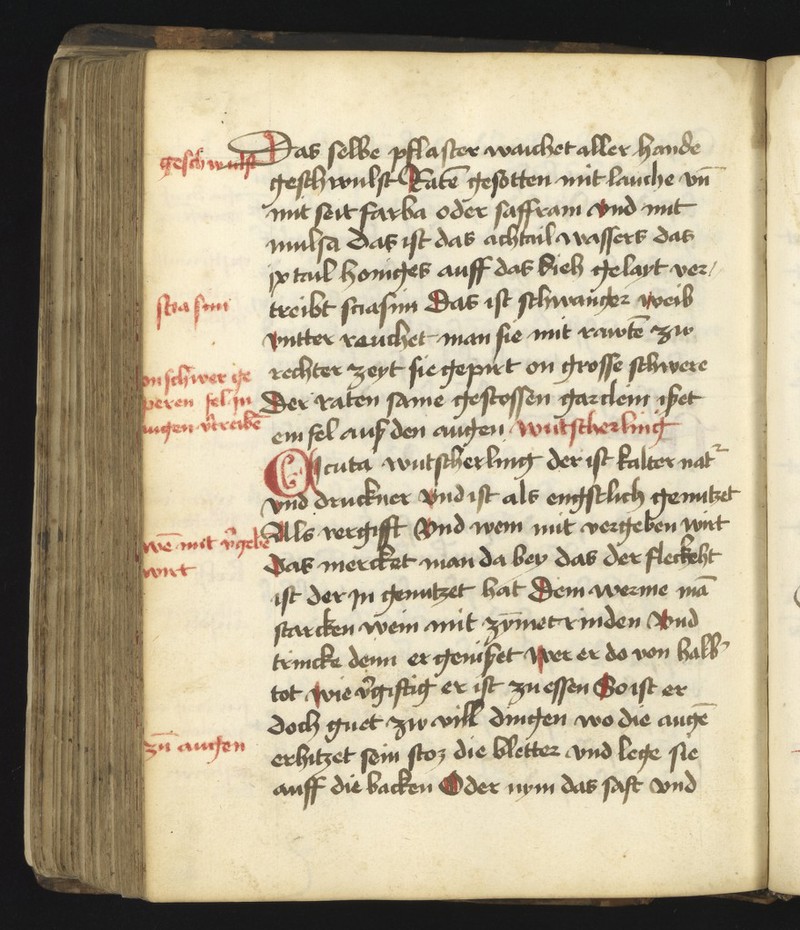 geschwulst
Das selbe pflaster waichet aller hande
geschwulst Ratē gesotten mit lauche vn̄
mit seit farba oder saffram vnd mit
mulsa das ist das achtail wassers das
ix tail honiges auff das diech gelayt ver/
sciasim
treibt sciasim Das ist schwanger weib
vntter reuchet man sie mit rawtē zw
rechter zeyt sie gepirt on grosse schwere
on schwer ge
peren fel in
augen v̄treibē
Der raten same gestossen
ein fel auß den augen wutscherling
Cicuta wutscherling der ist kalter nat᷑
vnd druckner vnd ist als engstlich genutzet
Als vergifft Vnd wem mit vergeben wirt
wē mit v̄gebē
wirt
Das mercket man da bey das der fleckeht
ist der in genutzet hat Dem werme mā
starcken wein mit zym̄etrinden vnd
trincke denn er genißet wer er do von halb᷑
tot wie v̄giftig er ist zu essen So ist er
doch guet zw vill dingen wo die augē
zūn augen
erhitzet sein stoz die bletter vnd lege sie
auff die backen Oder nym das saft vnd